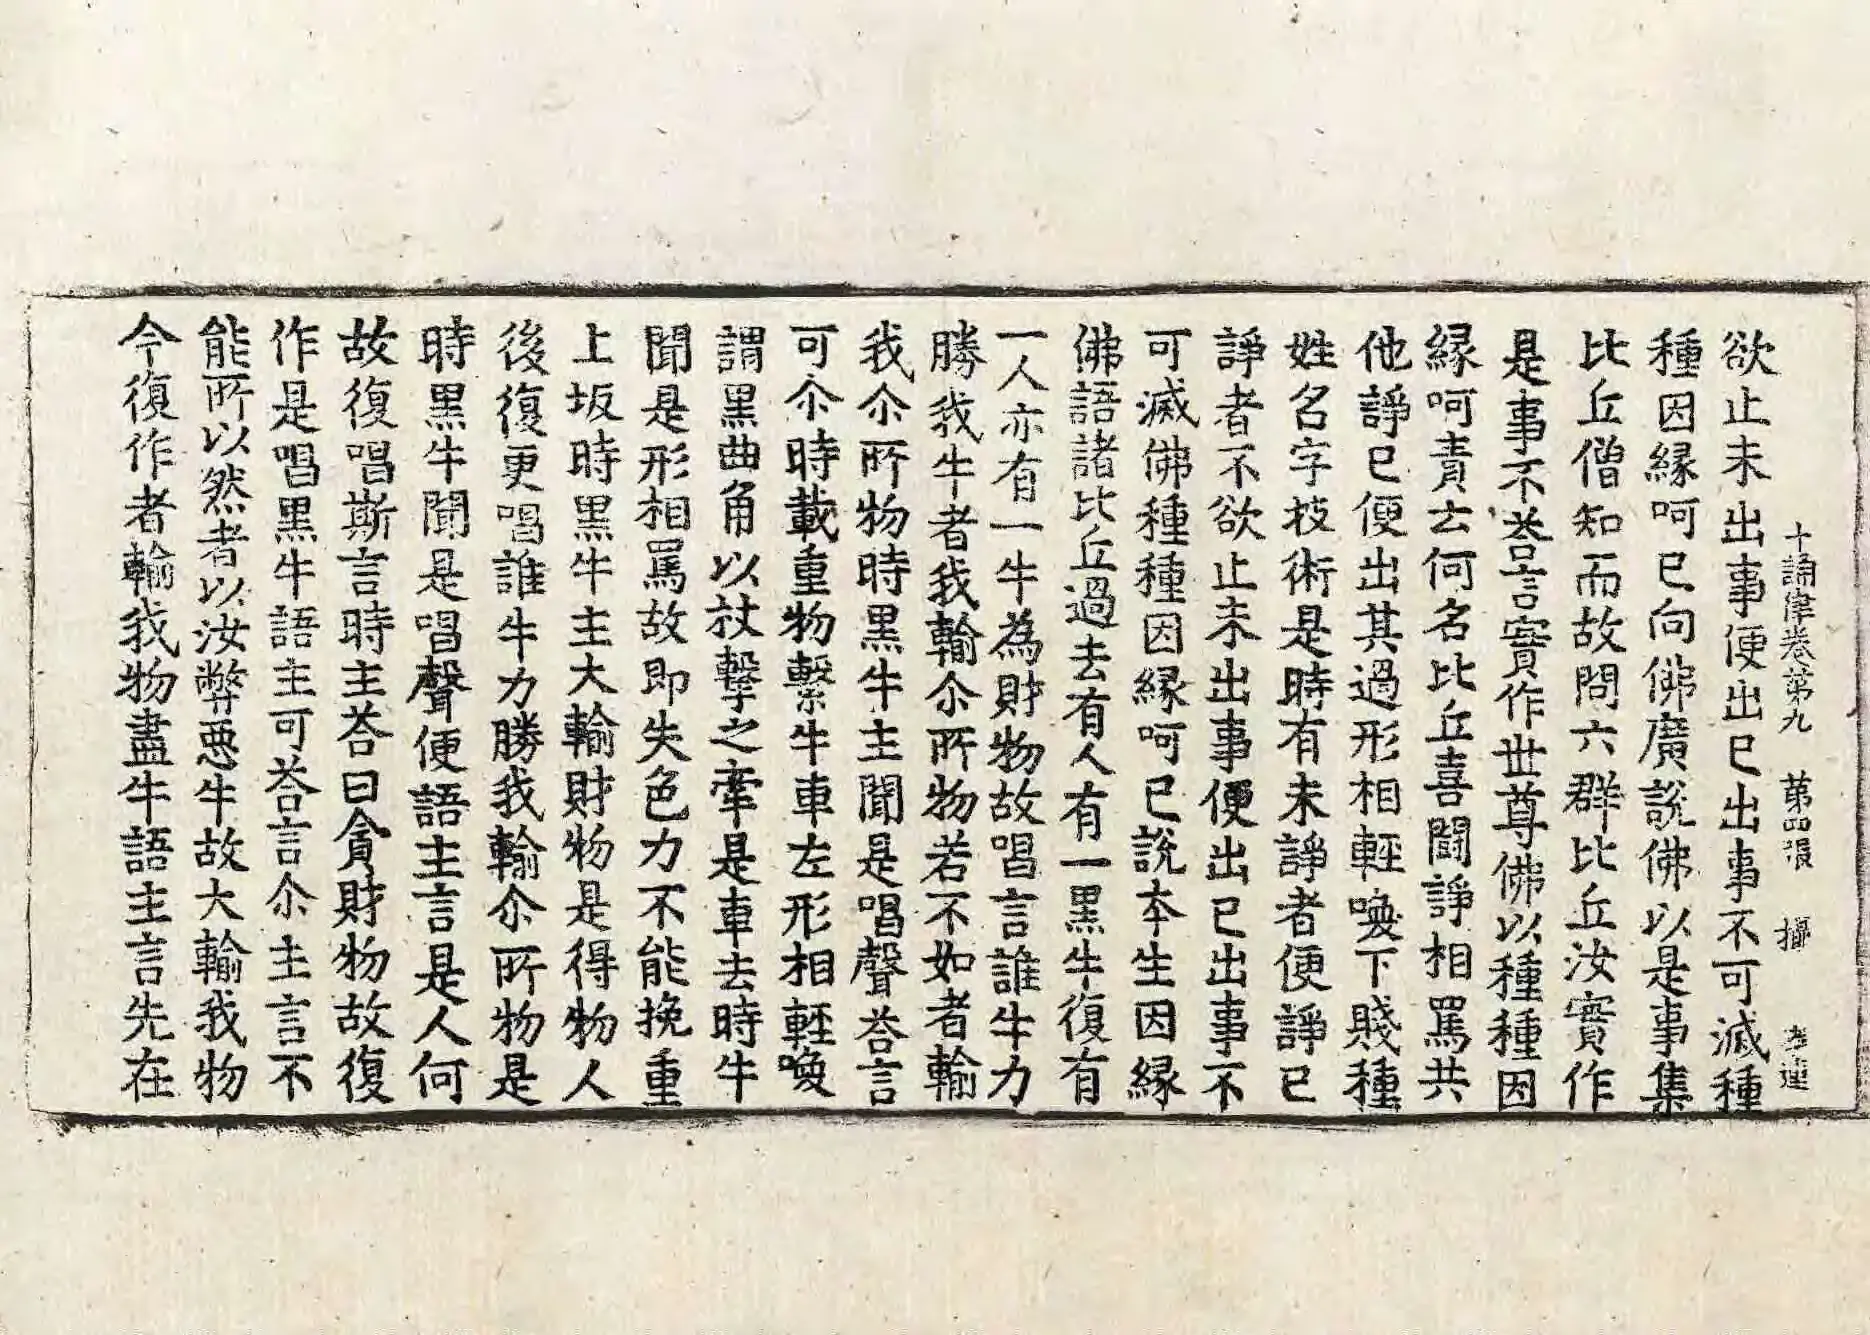 十誦律卷第九　第四張　攝　孝連
欲止未出事便出已出事不可滅種
種因縁呵已向佛廣說佛以是事集
比丘僧知而故問六群比丘汝實作
是事不荅言實作世尊佛以種種因
縁呵責云何名比丘喜鬪諍相罵共
他諍已便出其過形相輕喚下賤種
姓名字技術是時有未諍者便諍已
諍者不欲止未出事便出已出事不
可滅佛種種因縁呵已說本生因縁
佛語諸比丘過去有人有一黒牛復有
一人亦有一牛為財物故唱言誰牛力
勝我牛者我輸尒所物若不如者輸
我尒所物時黒牛主聞是唱聲荅言
可尒時載重物繫牛車左形相輕喚
謂黒曲角以杖擊之牽是車去時牛
聞是形相罵故即失色力不能挽重
上坂時黒牛主大輸財物是得物人
後復更唱誰牛力勝我輸尒所物是
時黒牛聞是唱聲便語主言是人何
故復唱斯言時主荅曰貪財物故復
作是唱黒牛語主可荅言尒主言不
能所以然者以汝弊惡牛故大輸我物
今復作者輸我物盡牛語主言先在